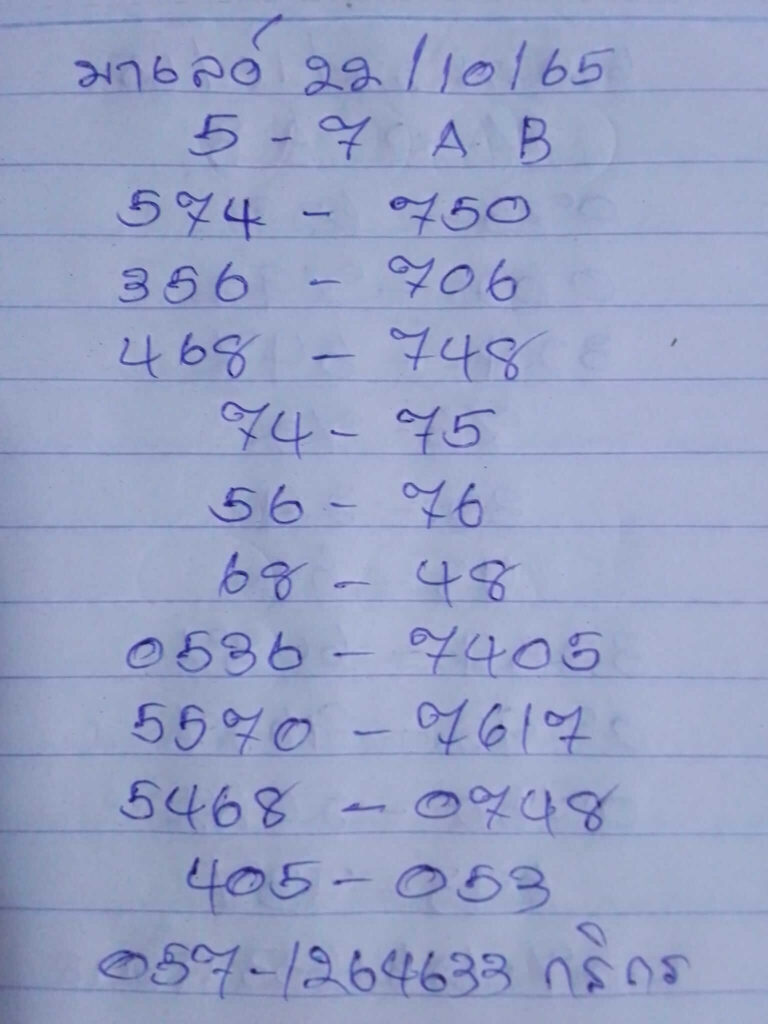 มาเลย์ 22/10/65
5-7 A B
574 - 750
356 - 706
468 - 748
74 - 75
56 - 76
68 - 48
0536 - 7405
5570 - 7617
5468 - 0748
405 - 053
057-1264633